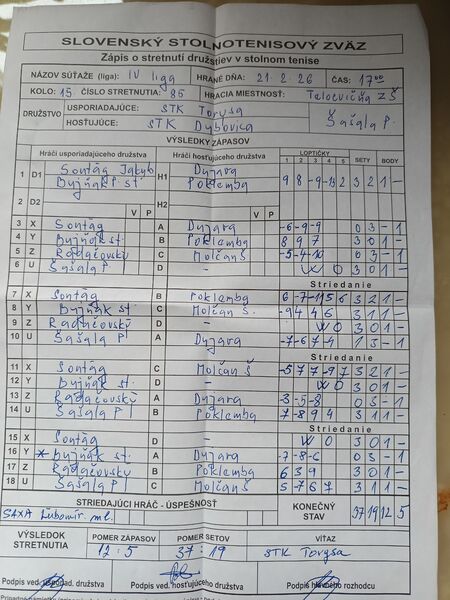 SLOVENSKÝ STOLNOTENISOVÝ ZVÄZ
Zápis o stretnutí družstiev v stolnom tenise
NÁZOV SÚŤAŽE (liga): IV liga HRANÉ DŇA: 21. 2. 26 ČAS: 17 00
KOLO: 15 ČÍSLO STRETNUTIA: 85 HRACIA MIESTNOSŤ: ZŠ
DRUŽSTVO USPORIADAJÚCE: STK Torysa Šašala P.
HOSŤUJÚCE: STK
VÝSLEDKY ZÁPASOV
Hráči usporiadajúceho družstva Hráči hosťujúceho družstva LOPTIČKY 1 2 3 4 5 SETY BODY
1 D1 Sontág Jakub H1 Dujara
Bujňák P. st. Poklemba 9 8 -9 -13 2 3 2 1 -
2 D2 H2
V P V P
3 X Sontág A Dujara -6 -9 -9 0 3 - 1
4 Y Bujňák st. B Poklemba 8 9 7 3 0 1 -
5 Z Radačovský C Molčan Š -5 -4 -10 0 3 - 1
6 U Šašala P D - W O 3 0 1 -
Striedanie
7 X Sontág B Poklemba 6 -7 -11 5 6 3 2 1 -
8 Y Bujňák st. C Molčan Š. -9 4 4 6 3 1 1 -
9 Z Radačovský D - W O 3 0 1 -
10 U Šašala P A Dujara -7 -6 7 -4 1 3 - 1
Striedanie
11 X Sontág C Molčan Š. -5 7 7 -9 7 3 2 1 -
12 Y Bujňák st. D - W O 3 0 1 -
13 Z Radačovský A Dujara -3 -5 -8 0 3 - 1
14 U Šašala P B Poklemba 7 -8 9 4 3 1 1 -
Striedanie
15 X Sontág D - W O 3 0 1 -
16 Y Bujňák st. A Dujara -7 -8 -6 0 3 - 1
17 Z Radačovský B Poklemba 6 3 9 3 0 1 -
18 U Šašala P C Molčan Š 5 -7 6 7 3 1 1 -
STRIEDAJÚCI HRÁČ - ÚSPEŠNOSŤ KONEČNÝ STAV 37 19 12 5
SAXA Ľubomír ml.
VÝSLEDOK STRETNUTIA POMER ZÁPASOV POMER SETOV VÍŤAZ
12 : 5 37 : 19 STK Torysa
Podpis ved. usporiad. družstva Podpis ved. hosťujúceho družstva Podpis hlavného rozhodcu